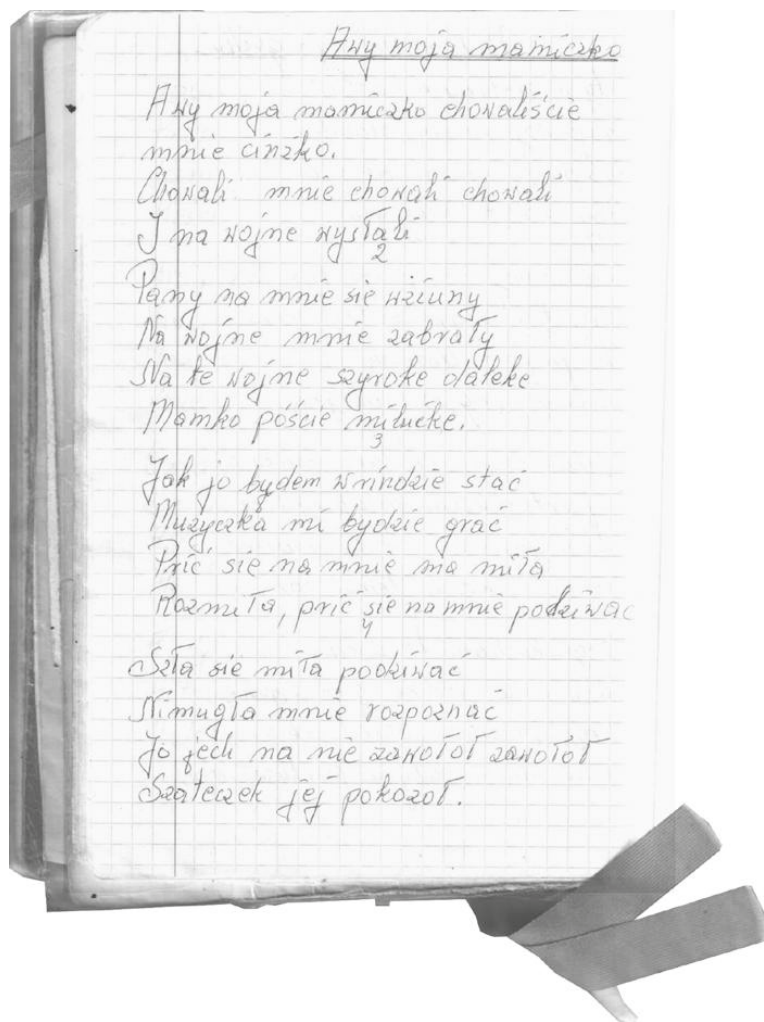 Awy moja mamiczko
Awy moja mamiczko chowaliście
mnie cinżko.
Chowali mnie chowali chowali
I na wojne wysłali
2
Pany na mnie sie wziuny
Na wojne mnie zabrały
Na te wojne szyroke daleke
Mamko póście milućke.
3
Jak jo bydem w rindzie stać
Muzyczka mi bydzie grać
Prić sie na mnie ma miła
Rozmiła, prić sie na mnie podziwać
4
Szła sie miła podziwać
Nimugła mnie rozpoznać
Jo jech na nie zawołoł zawołoł
Szateczek jej pokozoł.